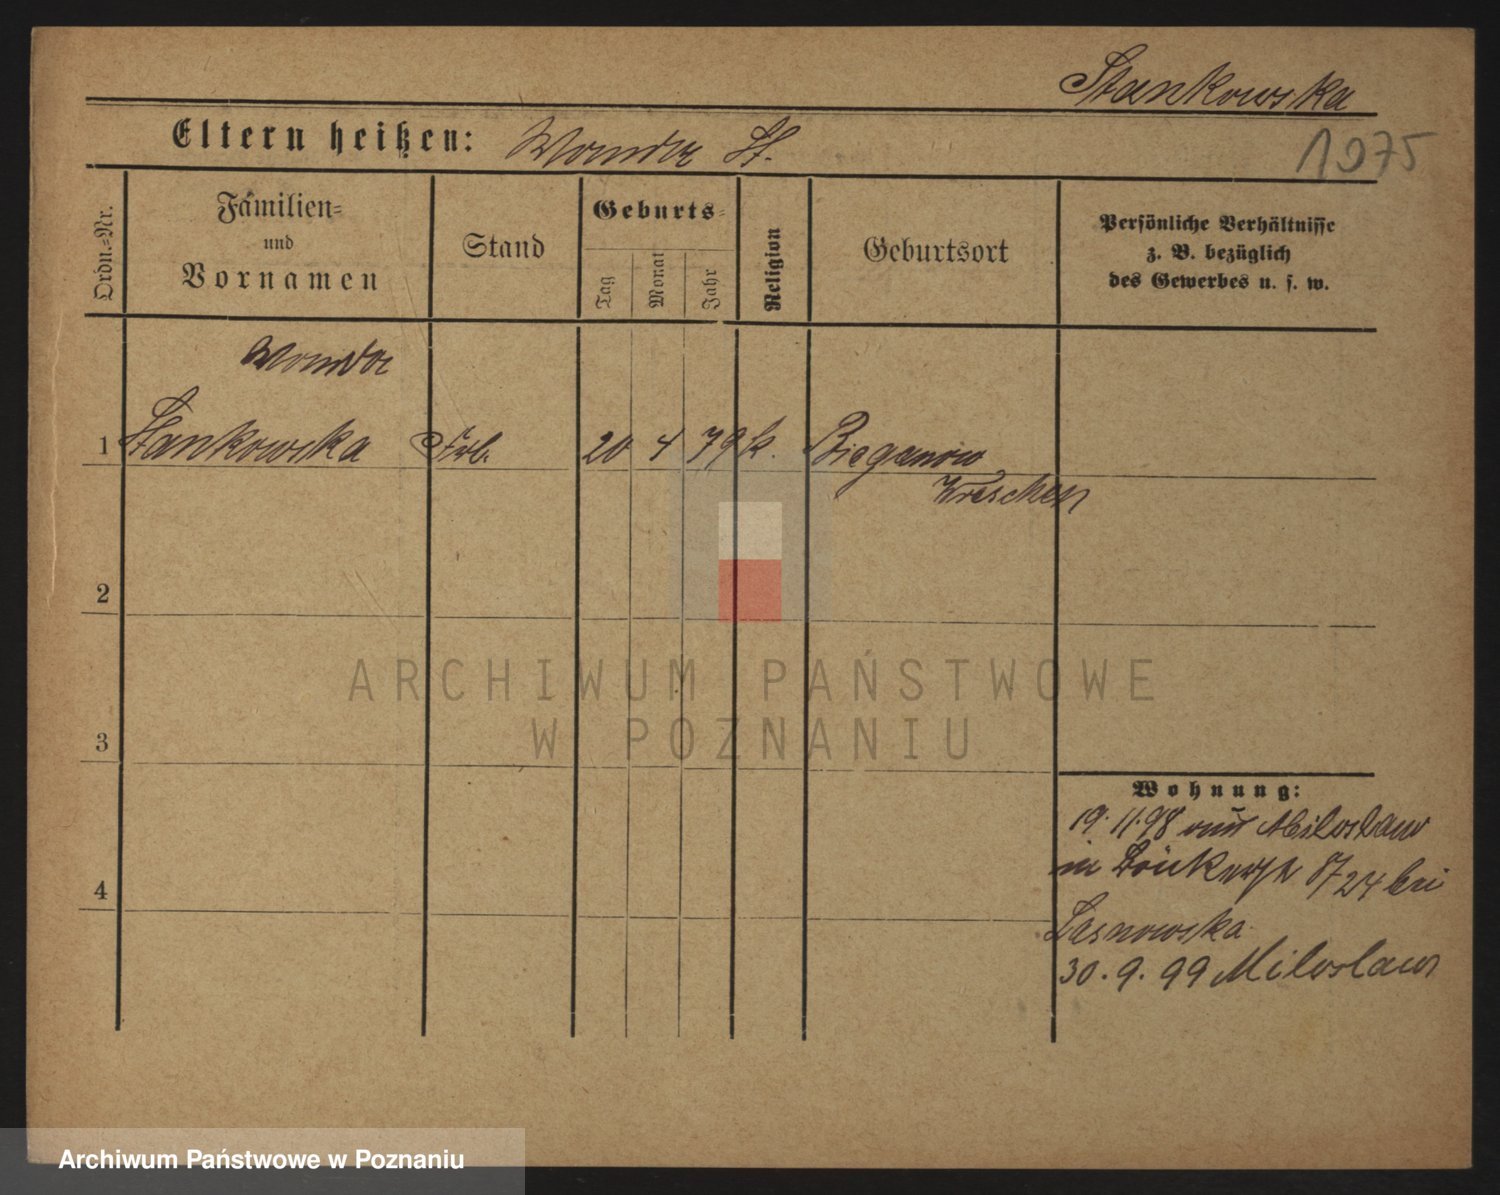 Stankowska
1975
Eltern heißen: Wanda St.
Ordn.=Nr.
Familien=
und
Vornamen
Stand
Geburts=
Tag
Monat
Jahr
Religion
Geburtsort
Persönliche Verhältnisse
z. B. bezüglich
des Gewerbes u. s. w.
Wanda
1 Stankowska Arb. 20 4 79 k. Bieganowo
Wreschen
2
ARCHIWUM PAŃSTWOWE
W POZNANIU
3
Wohnung:
19. 11. 98 aus Miloslaw
in 8/24 bei
Lasnowska
30. 9. 99 Miloslaw
4
Archiwum Państwowe w Poznaniu